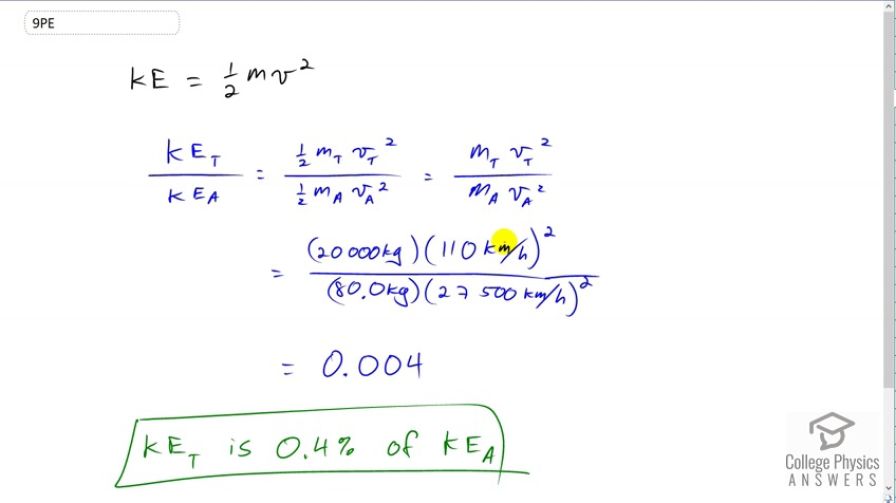 9PE
KE = 1/2 mv²
KE_T / KE_A = 1/2 m_T v_T² / 1/2 m_A v_A² = m_T v_T² / m_A v_A²
= (20 000kg)(110 km/h)² / (80.0kg)(27 500 km/h)²
= 0.004
KE_T is 0.4% of KE_A
College Physics
ANSWERS